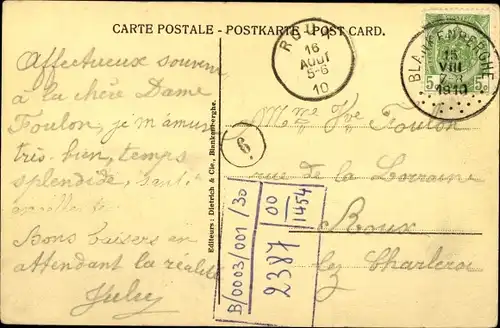 CARTE POSTALE - POSTKARTE - POST CARD.
Affectueux souvenir
à la chère Dame
Toulon, je m'amuse
très bien, temps
splendide, santé
Bons baisers en
attendant la réalité
July
Editeurs: Dietrich & Cie., Blankenberghe.
ROUX
16
AOUT
5-6
10
BLANKENBERGHE
15
VIII
1910
5 5
6
Mme Vve Toulon
rue de la Lorraine
Roux
lez Charleroi
B/0003/001/30
2387
00
1454